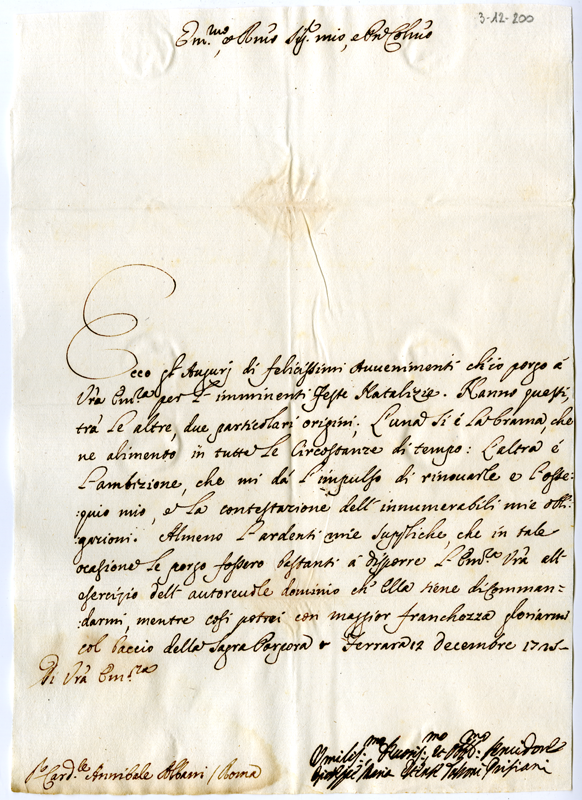 3-12-200
Em.mo, e Rmo Sig.r mio, e Pne Colmo
Ecco gl'Augurj di felicissimi Avvenimenti ch'io porgo à
Vrã Em.za per l' imminenti Feste Natalizie. Hanno questi,
trà le altre, due particolari origini; L'una si é la brama, che
ne alimento in tutte le Circostanze di tempo: L'altra é
L'ambizione, che mi dá l'impulso di rinovarle e l'osse-
:quio mio, e la contestazione dell' innumerabili mie obli-
:gazioni. Almeno l'ardenti mie suppliche, che in tale
ocasione le porgo fossero bastanti á disporre L'Em.za Vrã all'
esercizio dell' autorevole dominio ch' Ella tiene di comman-
:darmi, mentre cosi potrei con maggior franchezza gloriarmi
col baccio della Sagra Porpora & Ferrara 12 decembre 1725
Di Vrã Em.za
S.r Card.le Annibale Albani / Roma
Umiliss.mo Servidore
Maria